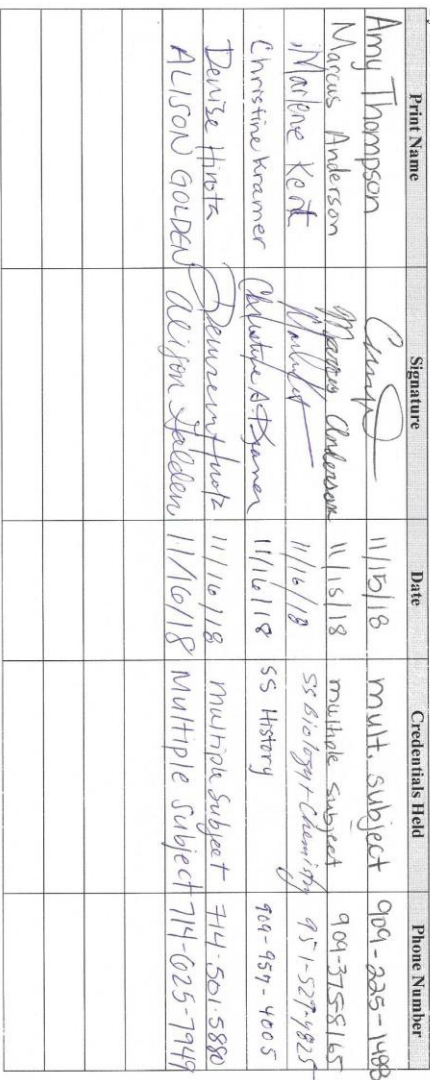 Print Name Signature Date Credentials Held Phone Number
Amy Thompson 11/15/18 mult. subject 909-225-1488
Marcus Anderson Marcus Anderson 11/15/18 multiple subject 909-375-8165
Marlene Kent 11/16/18 SS Biology + Chemistry 951-529-9825
Christine Kramer Christine A. Kramer 11/16/18 SS History 909-957-4005
Denise Hirota 11/16/18 multiple subject 714.501.5880
ALISON GOLDEN Alison Golden 11/16/18 Multiple Subject 714-625-7949